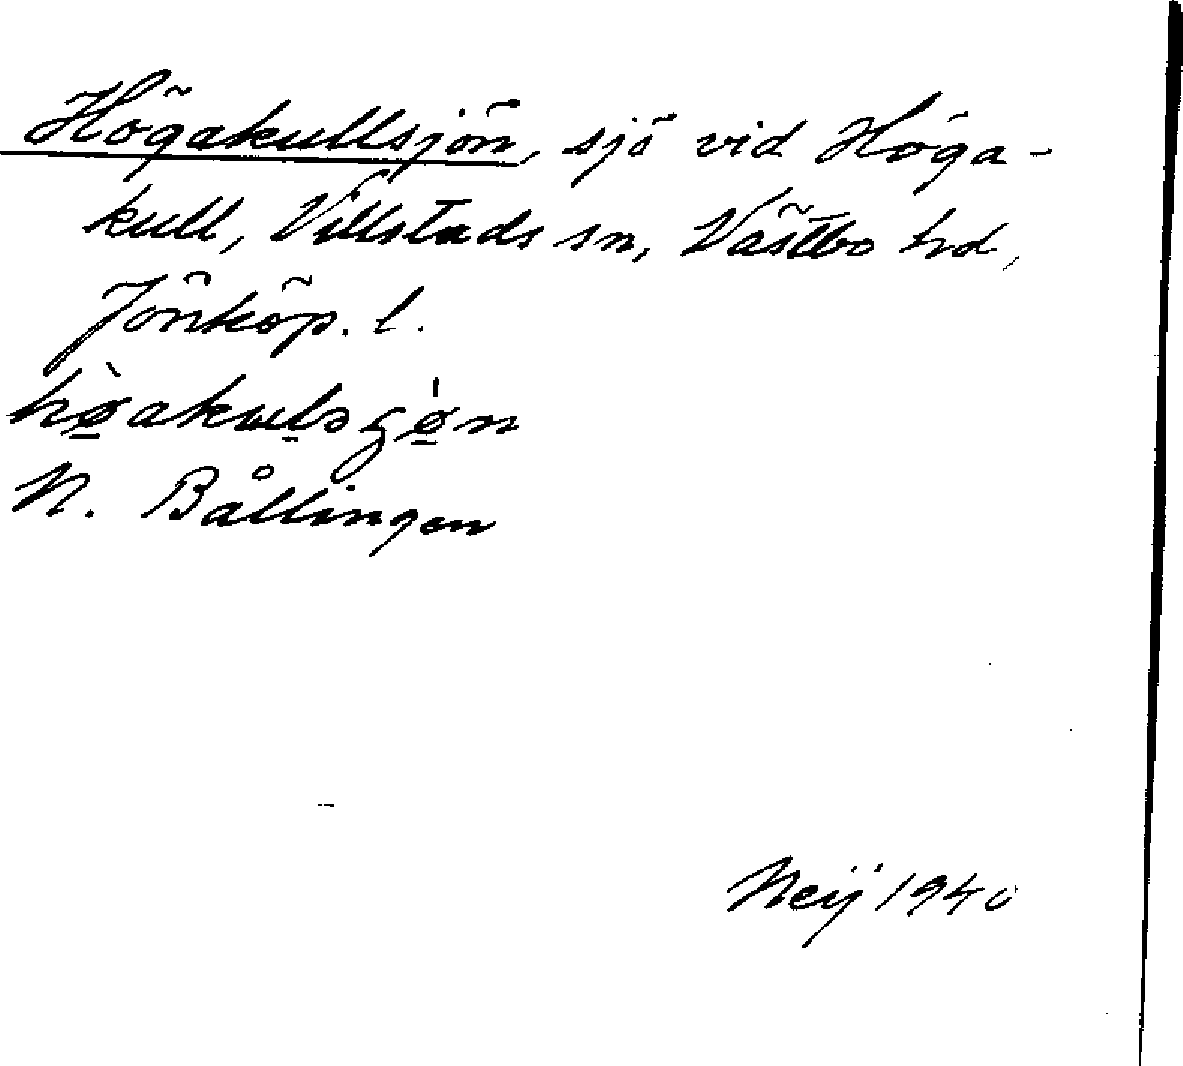 Högakullsjön, sjö vid Höga-
kull, Villstads sn, Västbo hd,
Jönköp. l.
hø̀akuulsʒø̍n
N. Bållingen
Neij 1940